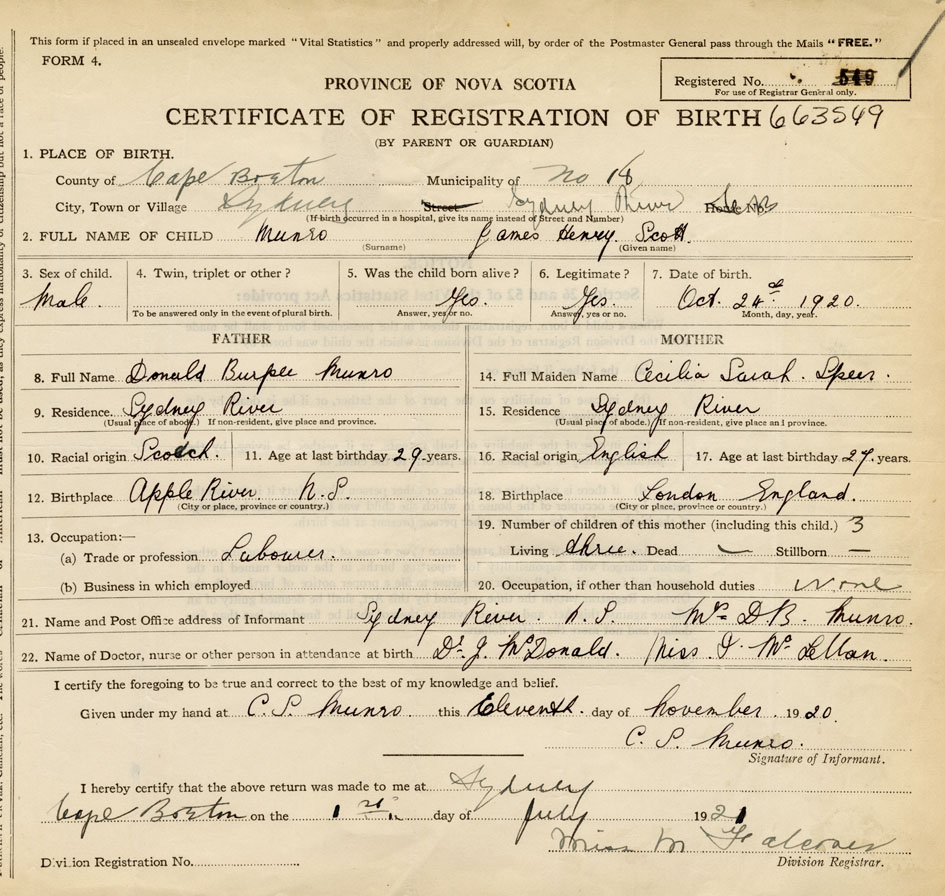 This form if placed in an unsealed envelope marked "Vital Statistics" and properly addressed will, by order of the Postmaster General pass through the Mails "FREE."
FORM 4.
Registered No. 549
For use of Registrar General only.
PROVINCE OF NOVA SCOTIA
CERTIFICATE OF REGISTRATION OF BIRTH 663549
(BY PARENT OR GUARDIAN)
1. PLACE OF BIRTH.
County of Cape Breton Municipality of No 18
City, Town or Village Sydney Street Sydney River House No.
(If birth occurred in a hospital, give its name instead of Street and Number)
2. FULL NAME OF CHILD Munro James Henry Scott
(Surname) (Given name)
3. Sex of child. 4. Twin, triplet or other? 5. Was the child born alive? 6. Legitimate? 7. Date of birth.
Male. Yes. Yes. Oct. 24 1920.
To be answered only in the event of plural birth. Answer, yes or no. Answer, yes or no. Month, day, year.
FATHER MOTHER
8. Full Name Donald Burpee Munro 14. Full Maiden Name Cecilia Sarah. Speer.
9. Residence. Sydney River 15. Residence Sydney River
(Usual place of abode.) If non-resident, give place and province. (Usual place of abode.) If non-resident, give place and province.
10. Racial origin Scotch. 11. Age at last birthday 29. years. 16. Racial origin English 17. Age at last birthday 27. years.
12. Birthplace Apple River. N.S. 18. Birthplace London England.
(City or place, province or country.) (City or place, province or country.)
13. Occupation:— 19. Number of children of this mother (including this child.) 3
(a) Trade or profession Labourer. Living three. Dead — Stillborn —
(b) Business in which employed 20. Occupation, if other than household duties None
21. Name and Post Office address of Informant Sydney River. N.S. Mrs D.B. Munro.
22. Name of Doctor, nurse or other person in attendance at birth Dr. J. McDonald. Miss I. McLellan.
I certify the foregoing to be true and correct to the best of my knowledge and belief.
Given under my hand at C. S. Munro. this Eleventh. day of November. 1920.
C. S. Munro.
Signature of Informant.
I hereby certify that the above return was made to me at Sydney
Cape Breton on the day of July 1921
Miss M Falconer
Division Registrar.
Division Registration No.